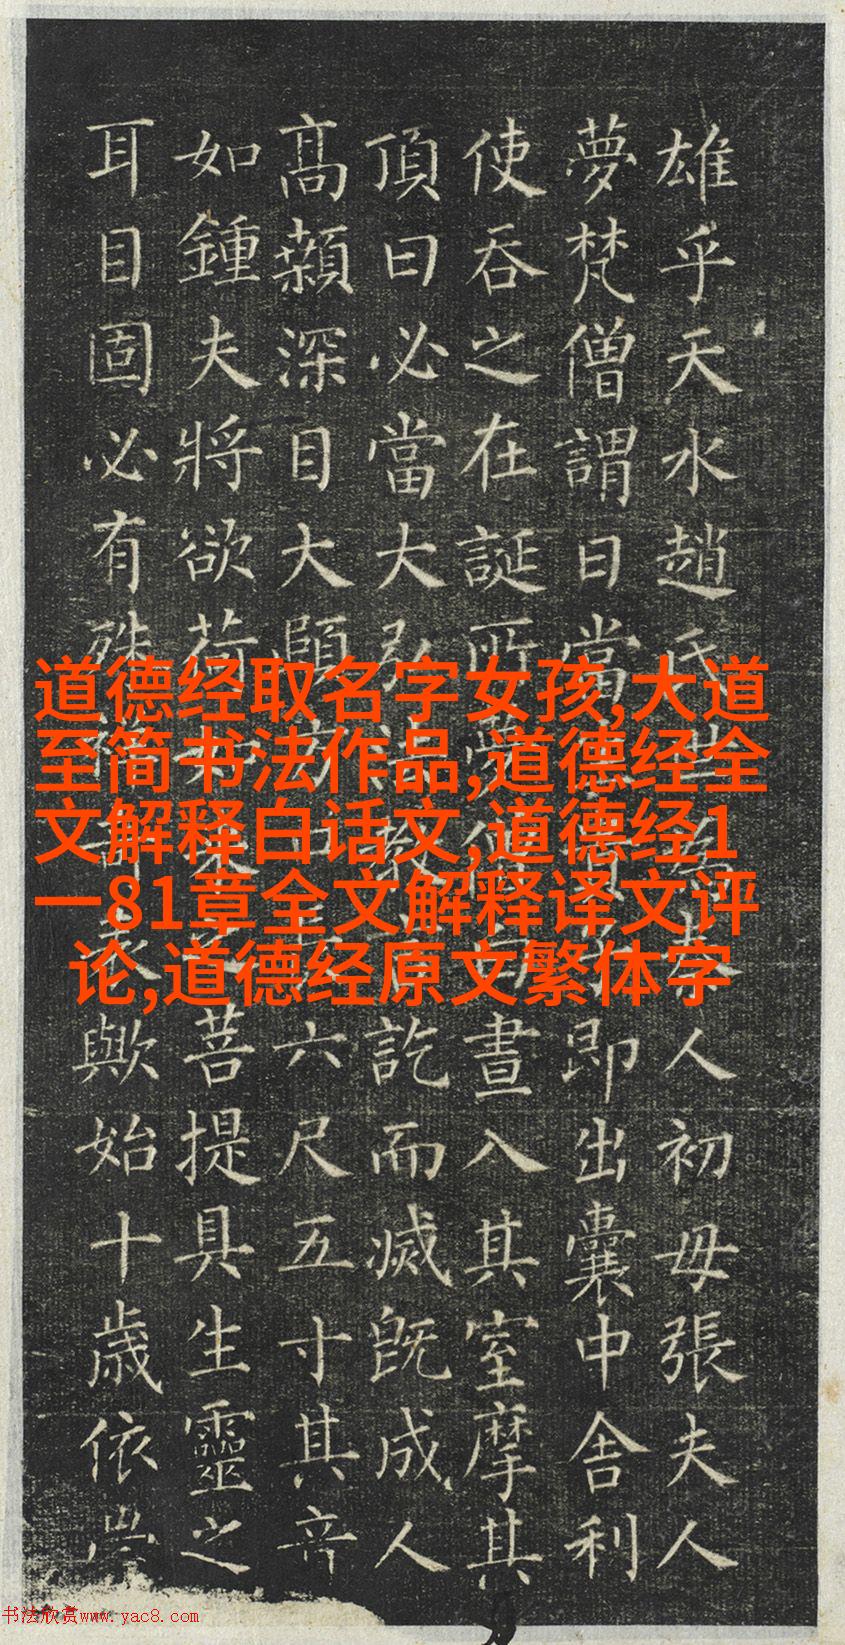 雄乎天水趙氏世為秦人初母張夫人
夢梵僧謂曰當生貴子即出囊中舍利
使吞之在誕所夢僧白晝入其室摩其
頂曰必當大弘法教言訖而滅既成人
高顙深目大頤方口長六尺五寸其音
如鍾夫將欲荷如來之菩提具生靈之
耳目固必有殊祥奇表歟始十歲依
道德经取名字女孩,大道
至简书法作品,道德经全
文解释白话文,道德经1
一81章全文解释译文评
论,道德经原文繁体字
书法欣赏www.yac8.com